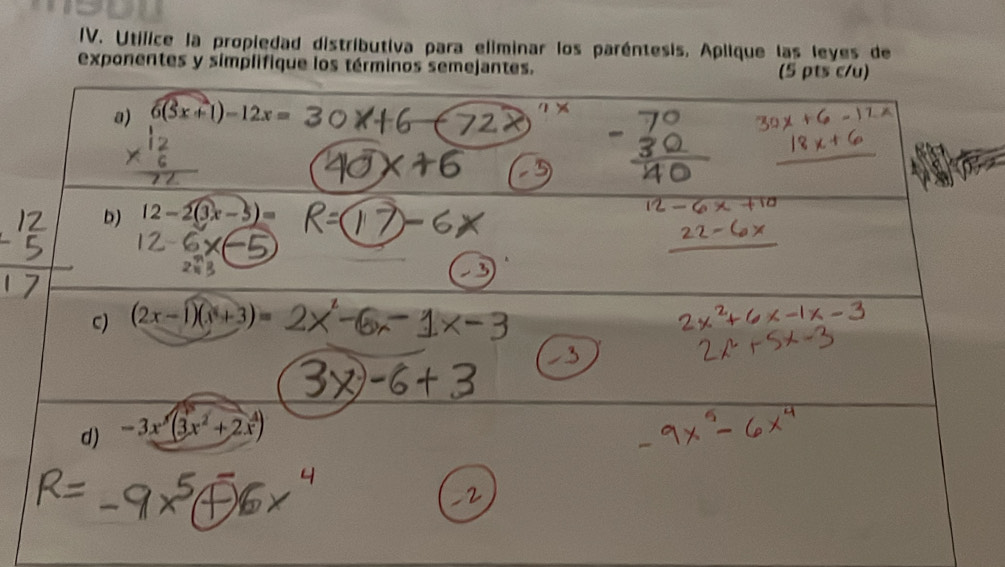 IV. Utilice la propiedad distributiva para eliminar los paréntesis. Aplique las leyes de
exponentes y simplifique los términos semejantes. (5 pts c/u)
a) 6(5x+1)-12x= 30x+6-72x
12
× 6
72
40x+6
-5
70
- 30
40
30x+6-12x
18x+6
b) 12-2(3x-5)= R=17-6x
12-6x-5
12
- 5
17
-3
12-6x+10
22-6x
c) (2x-1)(x+3)= 2x²-6x-1x-3
3x-6+3
-3
2x²+6x-1x-3
2x²+5x-3
d) -3x³(3x²+2x)
R= -9x⁵+6x⁴
-2
-9x⁵-6x⁴